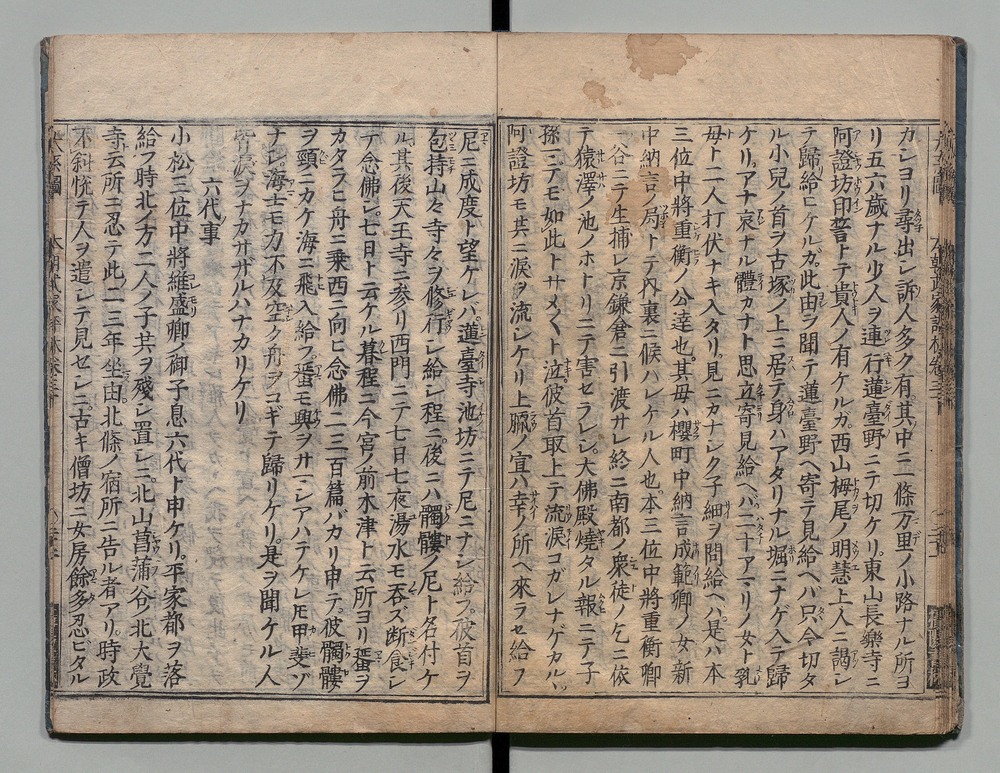 カシヨリ尋出シ訴人多ク有其中ニ二條万里ノ小路ナル所ヨ
リ五六歳ナル少人ヲ連行蓮臺野ニテ切ケリ東山長樂寺ニ
阿證坊印誓トテ貴人ノ有ケルガ西山栂尾ノ明慧上人ニ謁シ
テ歸給ヒケルガ此由ヲ聞テ蓮臺野ヘ寄テ見給ヘバ只今切タ
ル小兒ノ首ヲ古塚ノ上ニ居テ身ハアタリナル堀ニナゲ入テ歸
ケリアナ哀ナル體カナト思立寄見給ヘバ二十アマリノ女ト乳
母ト二人打伏ナキ入タリ見ニカナシク子細ヲ問給ヘハ是ハ本
三位中將重衡ノ公達也其母ハ櫻町中納言成範卿ノ女新
中納言ノ局トテ内裏ニ候ハシケル人也本三位中將重衡卿
一谷ニテ生捕レ京鎌倉ニ引渡サレ終ニ南都ノ衆徒ノ乞ニ依
テ猿澤ノ池ノホトリニテ害セラレシ大佛殿燒タル報ニテ子
孫ニテモ如此トサメ〳〵ト泣彼首取上テ流涙コガレナゲカル
阿證坊モ共ニ涙ヲ流シケリ上臈ノ宣ハ幸ノ所ヘ來ラセ給フ
尼ニ成度ト望ケレバ蓮臺寺池坊ニテ尼ニナシ給フ彼首ヲ
包持山々寺々ヲ修行シ給シ程ニ後ニハ髑髏ノ尼ト名付ケ
ル其後天王寺ニ参リ西門ニテ七日七夜湯水モ呑ズ断食シ
テ念佛シ七日ト云ケル暮程ニ今宮ノ前木津ト云所ヨリ蜑ヲ
カタラヒ舟ニ乗西ニ向ヒ念佛二三百篇バカリ申テ彼髑髏
ヲ頸ニカケ海ニ飛入給フ蜑モ興ヲサマシアハテケレ𪜈甲斐ゾ
ナシ海士モ力不及空ク舟ヲコギテ歸リケリ是ヲ聞ケル人
皆涙ヲナガサザルハナカリケリ
六代事
小松三位中將維盛卿ノ御子息六代ト申ケリ平家都ヲ落
給フ時北ノ方二人ノ子共ヲ殘シ置シニ北山菖蒲谷北大覺
寺云所ニ忍テ此二三年坐由北條ノ宿所ニ告ル者アリ時政
不斜悦テ人ヲ遣シテ見セシニ古キ僧坊ニ女房餘多忍ビタル